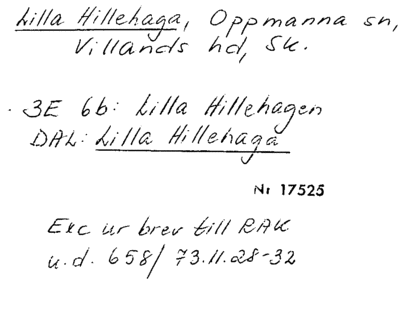 Lilla Hillehaga, Oppmanna sn,
Villands hd, Sk.
3E 6b: Lilla Hillehagen
DAL: Lilla Hillehaga
Nr 17525
Exc ur brev till RAK
u.d. 658/73.11.28-32